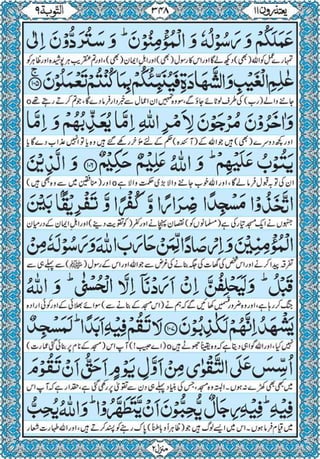 يعتذرون ١١ ٣٤٨ التوبة ٩
عَمَلَكُمْ وَ رَسُوْلُهٗ وَ الْمُؤْمِنُوْنَ ؕ وَ سَتُرَدُّوْنَ اِلٰى
تمہارے عمل کو اللہ (بھی) دیکھ لے گا اور اس کا رسول (بھی) اور اہلِ ایمان (بھی)، اور تم عنقریب ہر پوشیدہ اور ظاہر کو
عٰلِمِ الْغَيْبِ وَ الشَّهَادَةِ فَيُنَبِّئُكُمْ بِمَا كُنْتُمْ تَعْمَلُوْنَ ۝۱۰۵
جاننے والے (رب) کی طرف لوٹائے جاؤ گے، سو وہ تمہیں ان اعمال سے خبردار فرما دے گا جو تم کرتے رہتے تھے ۝
وَ اٰخَرُوْنَ مُرْجَوْنَ لِاَمْرِ اللّٰهِ اِمَّا يُعَذِّبُهُمْ وَ اِمَّا
اور کچھ دوسرے (بھی) ہیں جو اللہ کے (آئندہ) حکم کے لئے مؤخر رکھے گئے ہیں وہ یا تو انہیں عذاب دے گا یا
يَتُوْبُ عَلَيْهِمْ ؕ وَ اللّٰهُ عَلِيْمٌ حَكِيْمٌ ۝۱۰۶ وَ الَّذِيْنَ
ان کی توبہ قبول فرما لے گا، اور اللہ خوب جاننے والا بڑی حکمت والا ہے ۝ اور (منافقین میں سے وہ بھی ہیں)
اتَّخَذُوْا مَسْجِدًا ضِرَارًا وَّ كُفْرًا وَّ تَفْرِيْقًۢا بَيْنَ
جنہوں نے ایک مسجد تیار کی ہے (مسلمانوں کو) نقصان پہنچانے اور کفر (کو تقویت دینے) اور اہلِ ایمان کے درمیان
الْمُؤْمِنِيْنَ وَ اِرْصَادًا لِّمَنْ حَارَبَ اللّٰهَ وَ رَسُوْلَهٗ مِنْ
تفرقہ پیدا کرنے اور اس شخص کی گھات کی جگہ بنانے کی غرض سے جو اللہ اور اس کے رسول (ﷺ) سے پہلے ہی سے
قَبْلُ ؕ وَ لَيَحْلِفُنَّ اِنْ اَرَدْنَاۤ اِلَّا الْحُسْنٰى ؕ وَ اللّٰهُ
جنگ کر رہا ہے، اور وہ ضرور قسمیں کھائیں گے کہ ہم نے (اس مسجد کے بنانے سے) سوائے بھلائی کے اور کوئی ارادہ
يَشْهَدُ اِنَّهُمْ لَكٰذِبُوْنَ ۝۱۰۷ لَا تَقُمْ فِيْهِ اَبَدًا ؕ لَمَسْجِدٌ
نہیں کیا، اور اللہ گواہی دیتا ہے کہ وہ یقیناً جھوٹے ہیں ۝ (اے حبیب!) آپ اس (مسجد کے نام پر بنائی گئی عمارت)
اُسِّسَ عَلَى التَّقْوٰى مِنْ اَوَّلِ يَوْمٍ اَحَقُّ اَنْ تَقُوْمَ
میں کبھی بھی کھڑے نہ ہوں۔ البتہ وہ مسجد، جس کی بنیاد پہلے ہی دن سے تقویٰ پر رکھی گئی ہے، حقدار ہے کہ آپ اس
فِيْهِ ؕ فِيْهِ رِجَالٌ يُّحِبُّوْنَ اَنْ يَّتَطَهَّرُوْا ؕ وَ اللّٰهُ يُحِبُّ
میں قیام فرما ہوں۔ اس میں ایسے لوگ ہیں جو (ظاہراً و باطناً) پاک رہنے کو پسند کرتے ہیں، اور اللہ طہارت شعار
منزل ٢